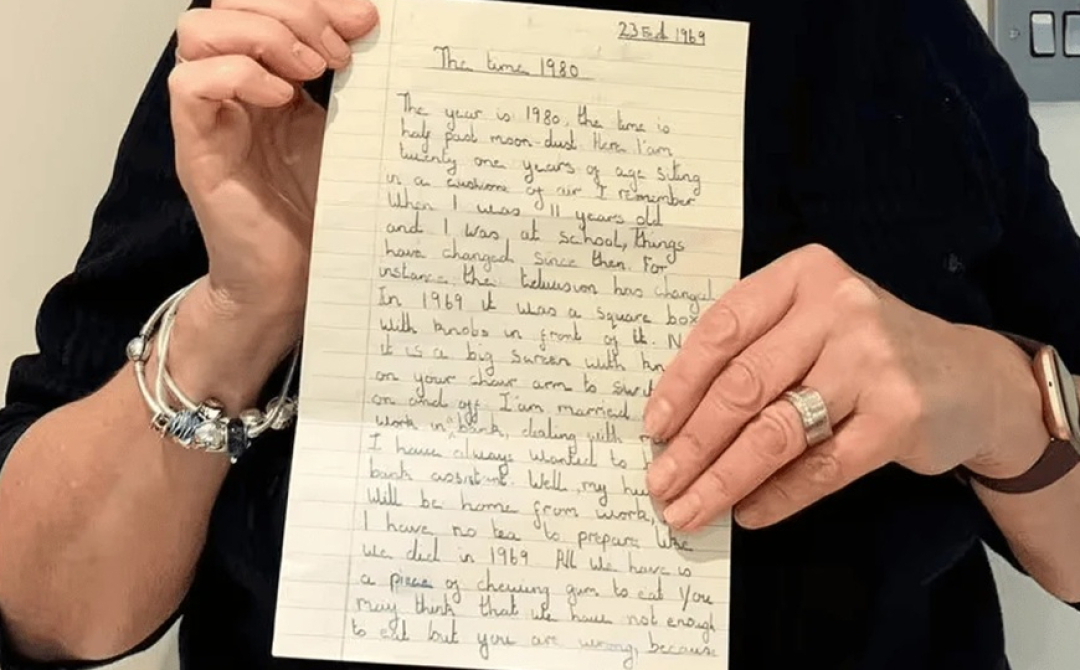 23 Ed 1969
The time 1980
The year is 1980, the time is
half past moon-dust. Here I'am
twenty one years of age siting
in a cushion of air I remember
When I was 11 years old
and I was at school, things
have changed since then. For
instance the television has changed
In 1969 it was a square box
with knobs in front of it. N
it is a big screen with kn
on your chair arm to swit
on and off. I'am married
work in bank, dealing with m
I have always wanted to
bank assistant. Well, my hu
will be home from work,
I have no tea to prepare like
we did in 1969. All we have is
a piece of chewing gum to eat you
may think that we have not enough
to eat but you are wrong, because